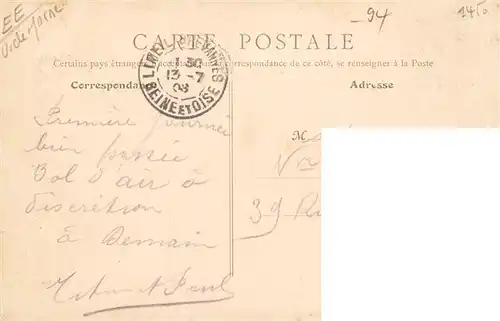 EE
Val de Marne
94
CARTE POSTALE
Certains pays étrangers correspondance de ce côté, se renseigner à la Poste
Correspondance
Adresse
LIMEIL-BREVANNES
1 30
13 - 7
08
SEINE ET OISE
M
39 R
Première journée
bien passée
Bol d'air à
discrétion
à Demain
et Paul